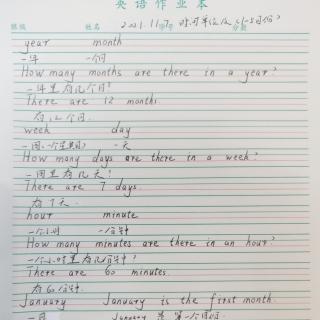 英语作业本
班级 姓名 2021.11.7. 时间单位及(1-5月份)
year month
一年 一个月
How many months are there in a year?
一年里有几个月?
There are 12 months.
有12个月.
week day
一周(一个星期) 一天
How many days are there in a week?
一周里有几天?
There are 7 days.
有7天.
hour minute
一个小时 一分钟
How many minutes are there in an hour?
一个小时里有几分钟?
There are 60 minutes.
有60分钟.
January January is the first month.
一月 January 是 第一个月份.